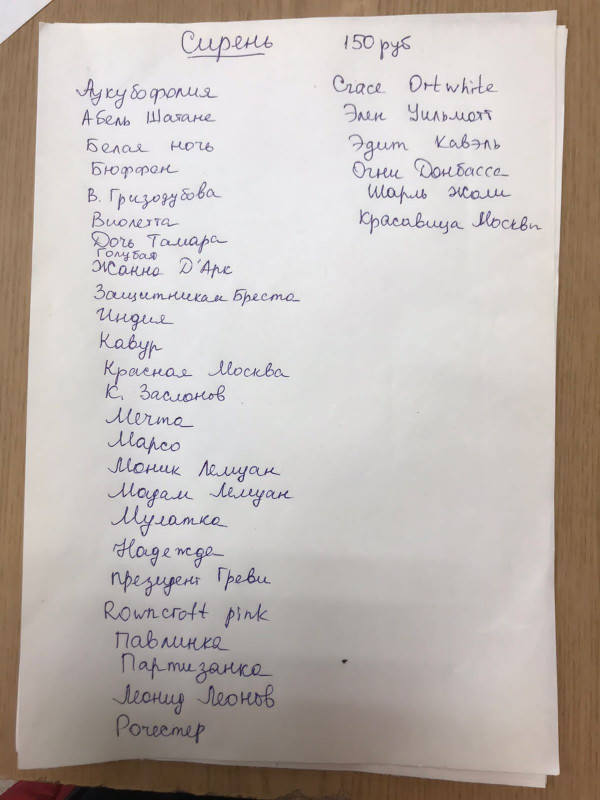 Сирень 150 руб
Аукубофолия
Абель Шатане
Белая ночь
Бюффон
В. Гризодубова
Виолетта
Дочь Тамара
Голубая
Жанна Д'Арк
Защитникам Бреста
Индия
Кавур
Красная Москва
К. Заслонов
Мечта
Марсо
Моник Лемуан
Мадам Лемуан
Мулатка
Надежда
президент Греви
Rowncroft pink
Павлинка
Партизанка
Леонид Леонов
Рочестер
Crace Ortwhite
Элен Уильмотт
Эдит Кавэль
Огни Донбасса
Шарль Жоли
Красавица Москвы